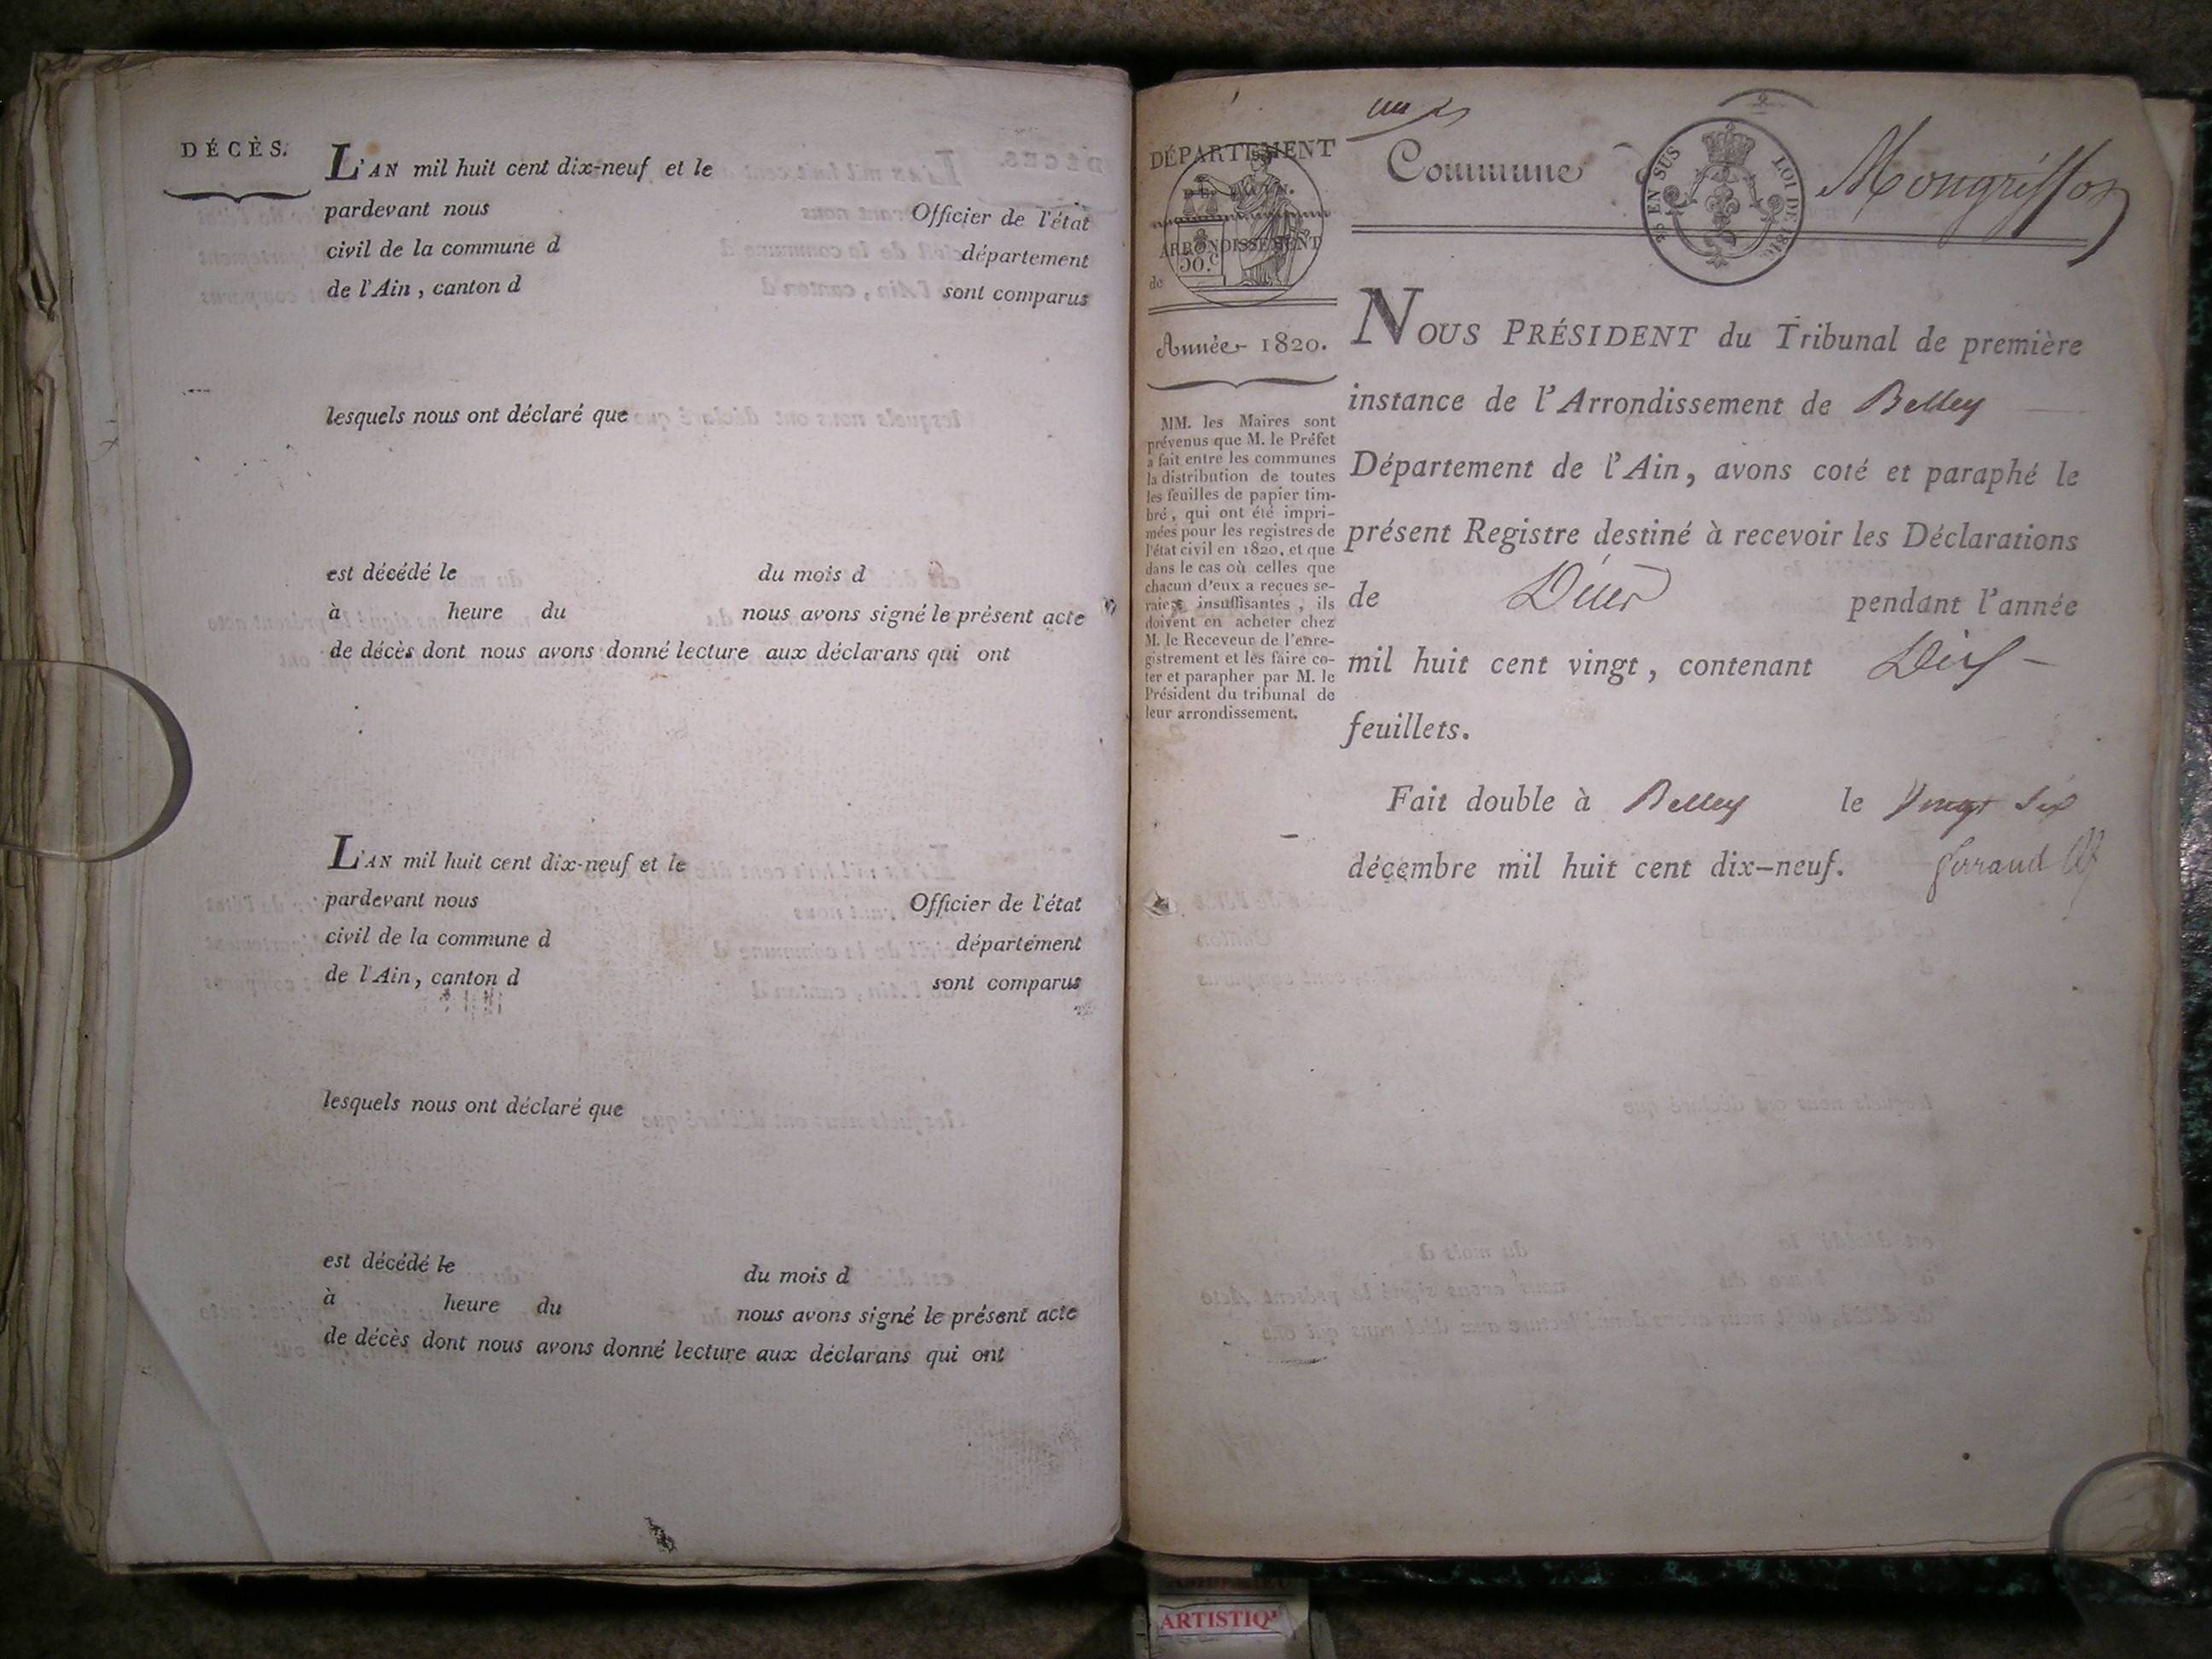 DÉCÈS.
L'AN mil huit cent dix-neuf et le
pardevant nous Officier de l'état
civil de la commune d département
de l'Ain, canton d sont comparus
lesquels nous ont déclaré que
est décédé le du mois d
à heure du nous avons signé le présent acte
de décès dont nous avons donné lecture aux déclarans qui ont
L'AN mil huit cent dix-neuf et le
pardevant nous Officier de l'état
civil de la commune d département
de l'Ain, canton d sont comparus
lesquels nous ont déclaré que
est décédé le du mois d
à heure du nous avons signé le présent acte
de décès dont nous avons donné lecture aux déclarans qui ont
DÉPARTEMENT
DE L'AIN.
ARRONDISSEMENT
de
50.c
Année 1820.
MM. les Maires sont
prévenus que M. le Préfet
a fait entre les communes
la distribution de toutes
les feuilles de papier tim-
bré, qui ont été impri-
mées pour les registres de
l'état civil en 1820, et que
dans le cas où celles que
chacun d'eux a reçues se-
raient insuffisantes, ils
doivent en acheter chez
M. le Receveur de l'enre-
gistrement et les faire co-
ter et parapher par M. le
Président du tribunal de
leur arrondissement.
Commune Mongriffon
EN SUS LOI DE 1816
NOUS PRÉSIDENT du Tribunal de première
instance de l'Arrondissement de Belley
Département de l'Ain, avons coté et paraphé le
présent Registre destiné à recevoir les Déclarations
de Décès pendant l'année
mil huit cent vingt, contenant Dix
feuillets.
Fait double à Belley le Vingt Six
décembre mil huit cent dix-neuf.
ARTISTIQ